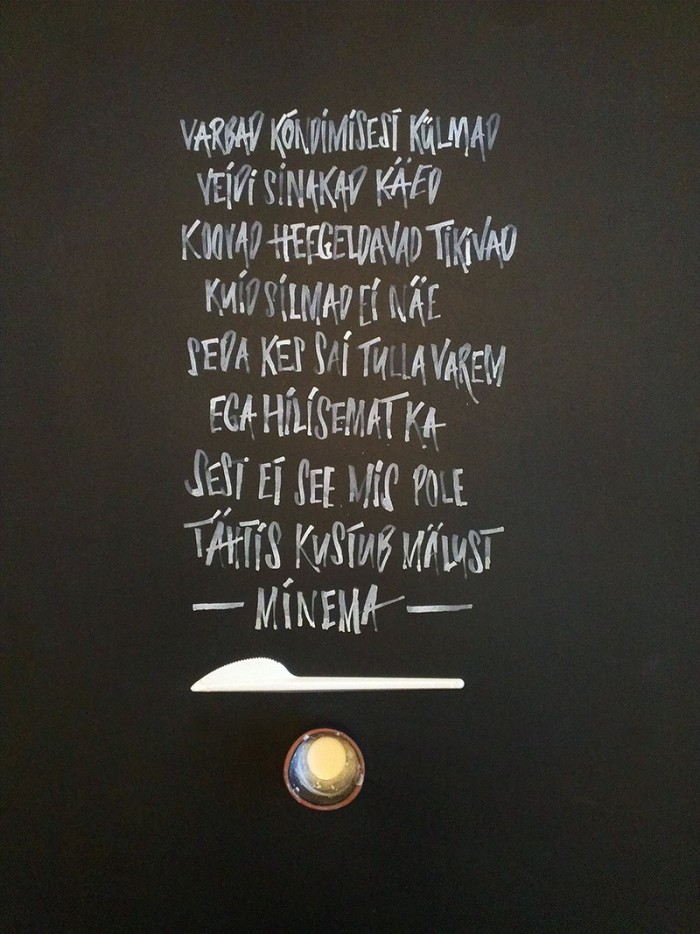 VARBAD KÕNDIMISEST KÜLMAD
VEIDI SINAKAD KÄED
KOOVAD HEEGELDAVAD TIKIVAD
KUID SILMAD EI NÄE
SEDA KES SAI TULLA VAREM
EGA HILISEMAT KA
SEST EI SEE MIS POLE
TÄHTIS KUSTUB MÄLUST
— MINEMA —